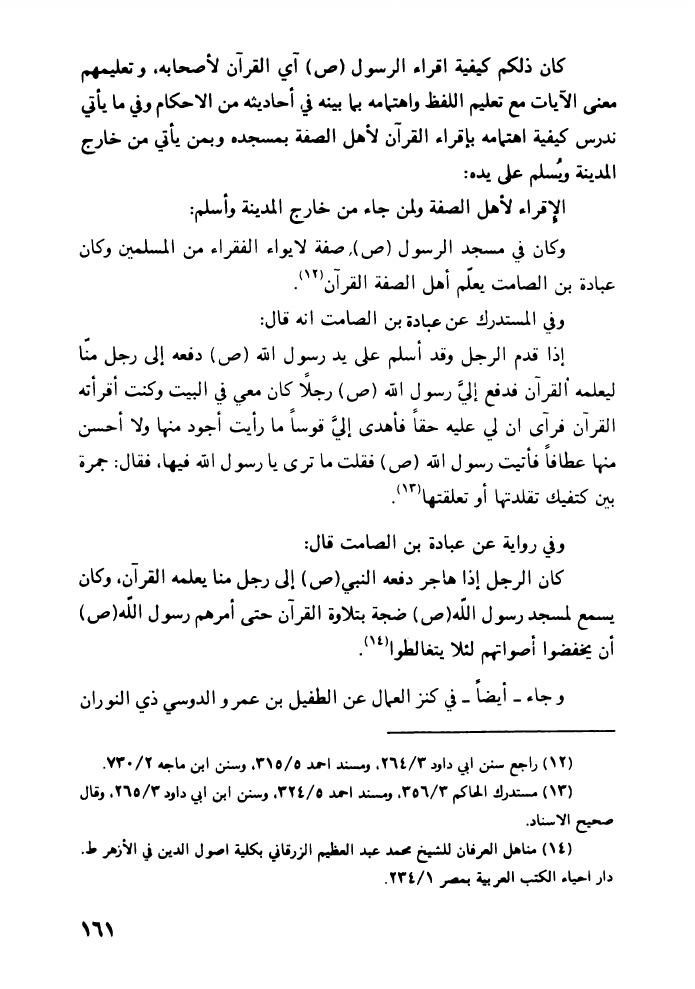 كان ذلكم كيفية اقراء الرسول (ص) آي القرآن لأصحابه، وتعليمهم
معنى الآيات مع تعليم اللفظ واهتمامه بما بينه في أحاديثه من الاحكام وفي ما يأتي
ندرس كيفية اهتمامه بإقراء القرآن لأهل الصفة بمسجده وبمن يأتي من خارج
المدينة ويُسلم على يده:
الإقراء لأهل الصفة ولمن جاء من خارج المدينة وأسلم:
وكان في مسجد الرسول (ص) صفة لايواء الفقراء من المسلمين وكان
عبادة بن الصامت يعلّم أهل الصفة القرآن(١٢).
وفي المستدرك عن عبادة بن الصامت انه قال:
إذا قدم الرجل وقد أسلم على يد رسول الله (ص) دفعه إلى رجل منّا
ليعلمه القرآن فدفع إليَّ رسول الله (ص) رجلًا كان معي في البيت وكنت أقرأته
القرآن فرآى ان لي عليه حقاً فأهدى إليَّ قوساً ما رأيت أجود منها ولا أحسن
منها عطافاً فأتيت رسول الله (ص) فقلت ما ترى يا رسول الله فيها، فقال: جمرة
بين كتفيك تقلدتها أو تعلقتها(١٣).
وفي رواية عن عبادة بن الصامت قال:
كان الرجل إذا هاجر دفعه النبي(ص) إلى رجل منا يعلمه القرآن، وكان
يسمع لمسجد رسول اللّه(ص) ضجة بتلاوة القرآن حتى أمرهم رسول اللّه(ص)
أن يخفضوا أصواتهم لئلا يتغالطوا(١٤).
وجاء ـ أيضاً ـ في كنز العمال عن الطفيل بن عمرو الدوسي ذي النوران
(١٢) راجع سنن ابي داود ٢٦٤/٣، ومسند احمد ٣١٥/٥، وسنن ابن ماجه ٧٣٠/٢.
(١٣) مستدرك الحاكم ٣٥٦/٣، ومسند احمد ٣٢٤/٥، وسنن ابن ابي داود ٢٦٥/٣، وقال
صحيح الاسناد.
(١٤) مناهل العرفان للشيخ محمد عبد العظيم الزرقاني بكلية اصول الدين في الأزهر ط.
دار احياء الكتب العربية بمصر ٢٣٤/١.
١٦١